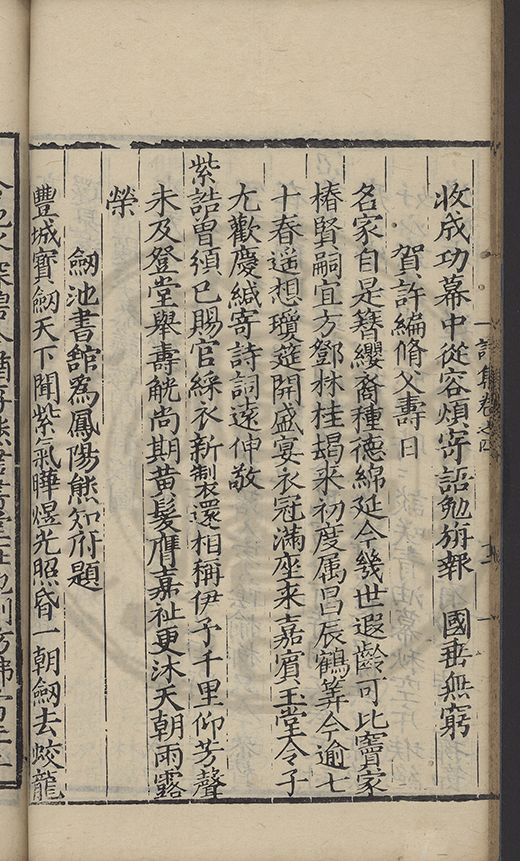 收成功幕中從容煩寄語勉旃報　國垂無窮
賀許編脩父壽日
名家自是簪纓裔種德綿延今幾世遐齡可比竇家
椿賢嗣宜方鄧林桂朅来初度属昌辰鶴筭今逾七
十春遥想瓊筵開盛宴衣冠滿座来嘉賓玉堂令子
尤歡慶緘寄詩詞遠伸敬
紫誥曽頒已賜官綵衣新製還相稱伊予千里仰芳聲
未及登堂舉壽觥尚期黄髮膺嘉祉更沐天朝雨露
榮
劒池書舘為鳳陽熊知府題
豐城寶劒天下聞紫氣曄煜光照昏一朝劒去蛟龍
詩集卷之四